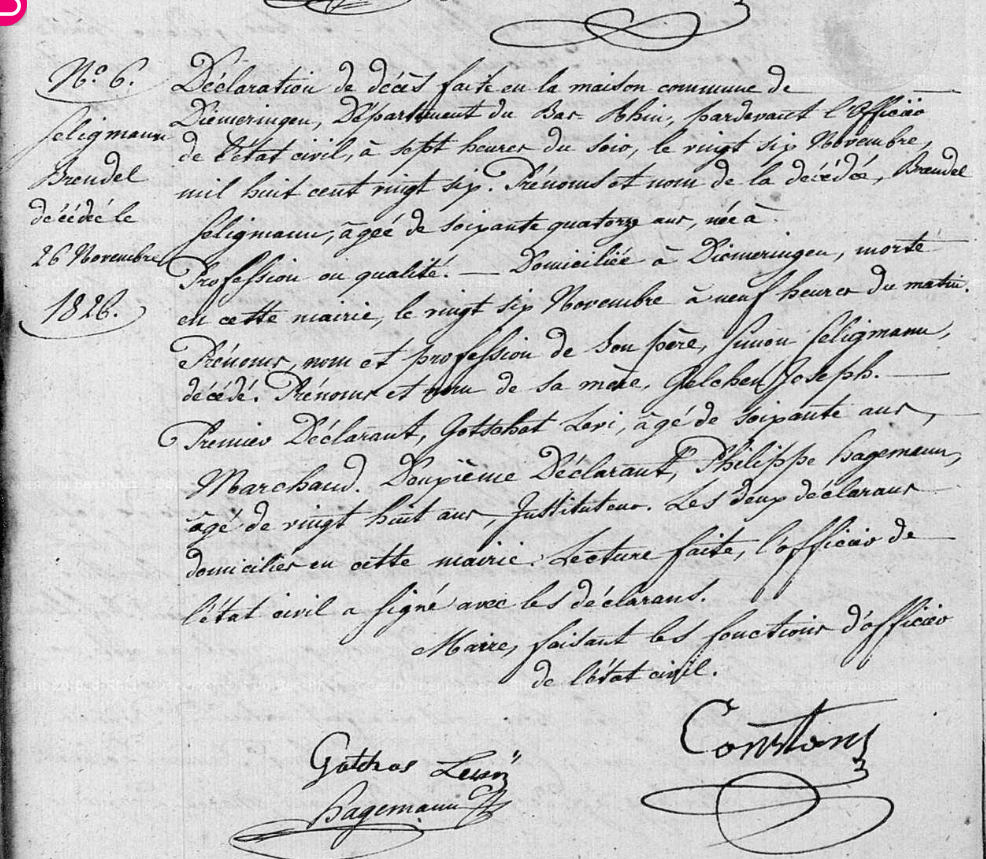 N.o 6.
Seligmann
Brendel
décédée le
26 Novembre
1826.
Déclaration de décès faite en la maison commune de
Diemeringen, Département du Bas Rhin, pardevant l'officier
de l'état civil, à sept heures du soir, le vingt six Novembre,
mil huit cent vingt six. Prénoms et nom de la décédée, Brendel
Seligmann, âgée de soixante quatorze ans, née à
Profession ou qualité. — Domiciliée à Diemeringen, morte
en cette mairie, le vingt six Novembre à neuf heures du matin.
Prénoms, nom et profession de son père, Simon Seligmann,
décédé. Prénoms et nom de sa mère, Gelchen Joseph. —
Premier Déclarant, Gotschot Levi, âgé de soixante ans,
Marchand. Deuxième Déclarant, Philippe Hagemann,
âgé de vingt huit ans, Instituteur. Les deux déclarans
domiciliés en cette mairie. Lecture faite, l'officier de
l'état civil a signé avec les déclarans.
Maire, faisant les fonctions d'officier
de l'état civil.
Constans
Hagemann